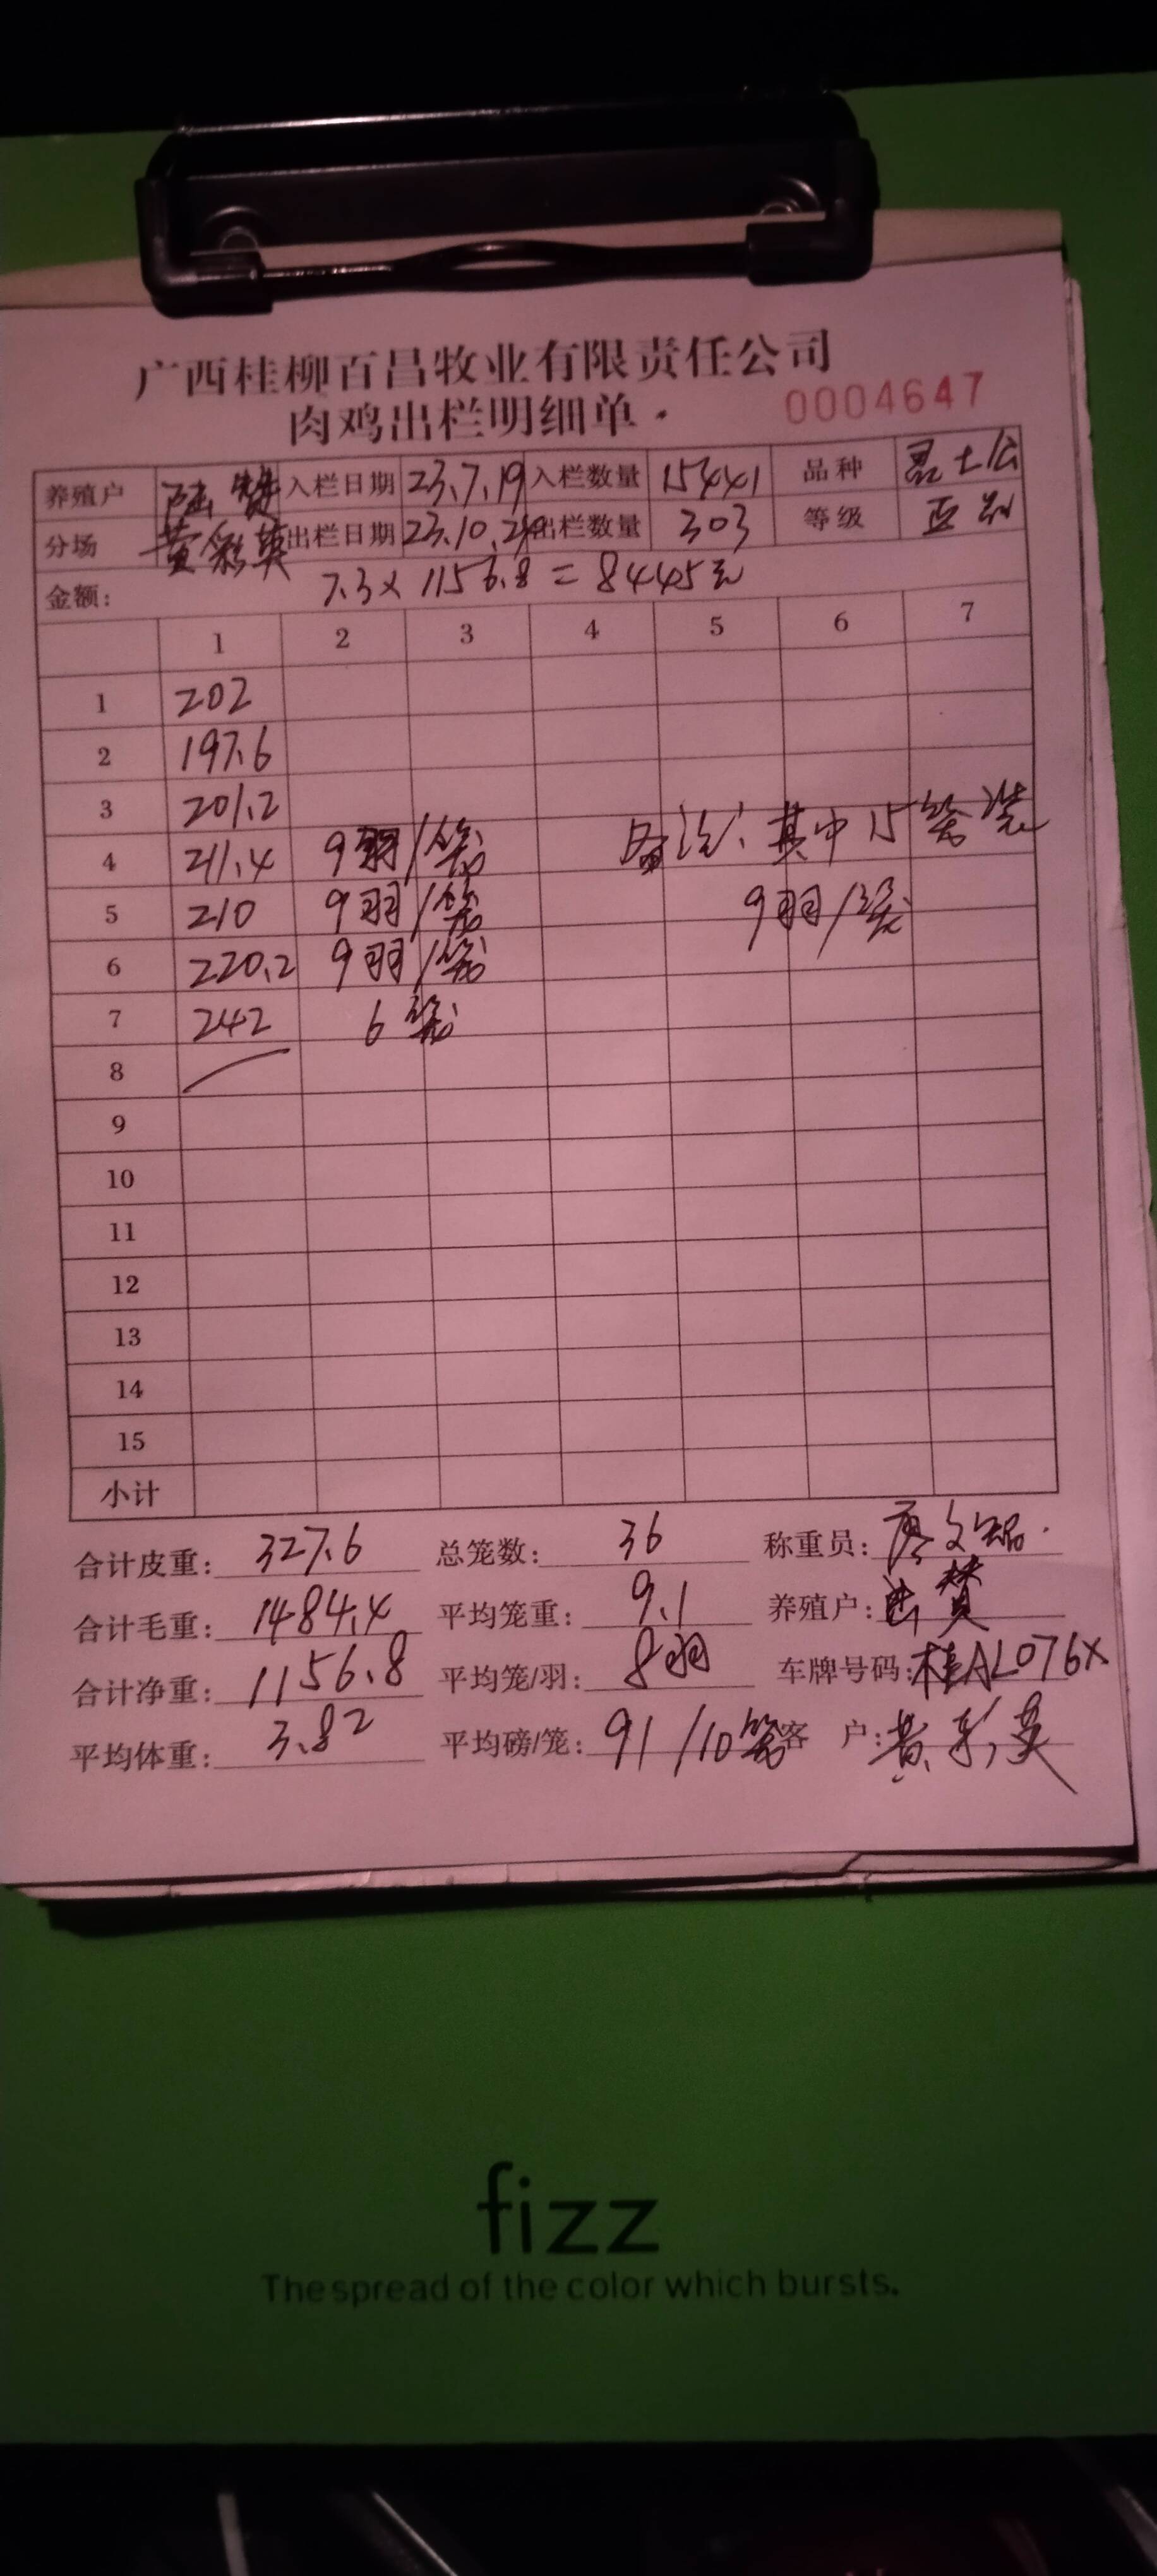 广西桂柳百昌牧业有限责任公司
肉鸡出栏明细单
0004647
养殖户 陆赞 入栏日期 23.7.19 入栏数量 15441 品种 昆土公
分场 黄彩英 出栏日期 23.10.29 出栏数量 303 等级 正品
金额: 7.3×1156.8=8445元
1 2 3 4 5 6 7
1 202
2 197.6
3 201.2
4 211.4 9羽/笼 备注:其中15笼装
5 210 9羽/笼 9羽/笼
6 220.2 9羽/笼
7 242 6笼
8
9
10
11
12
13
14
15
小计
合计皮重: 327.6 总笼数: 36 称重员: 廖文
合计毛重: 1484.4 平均笼重: 9.1 养殖户: 陆赞
合计净重: 1156.8 平均笼/羽: 8羽 车牌号码: 桂AL076X
平均体重: 3.82 平均磅/笼: 91/10笼 客户: 黄彩英
fizz
The spread of the color which bursts.